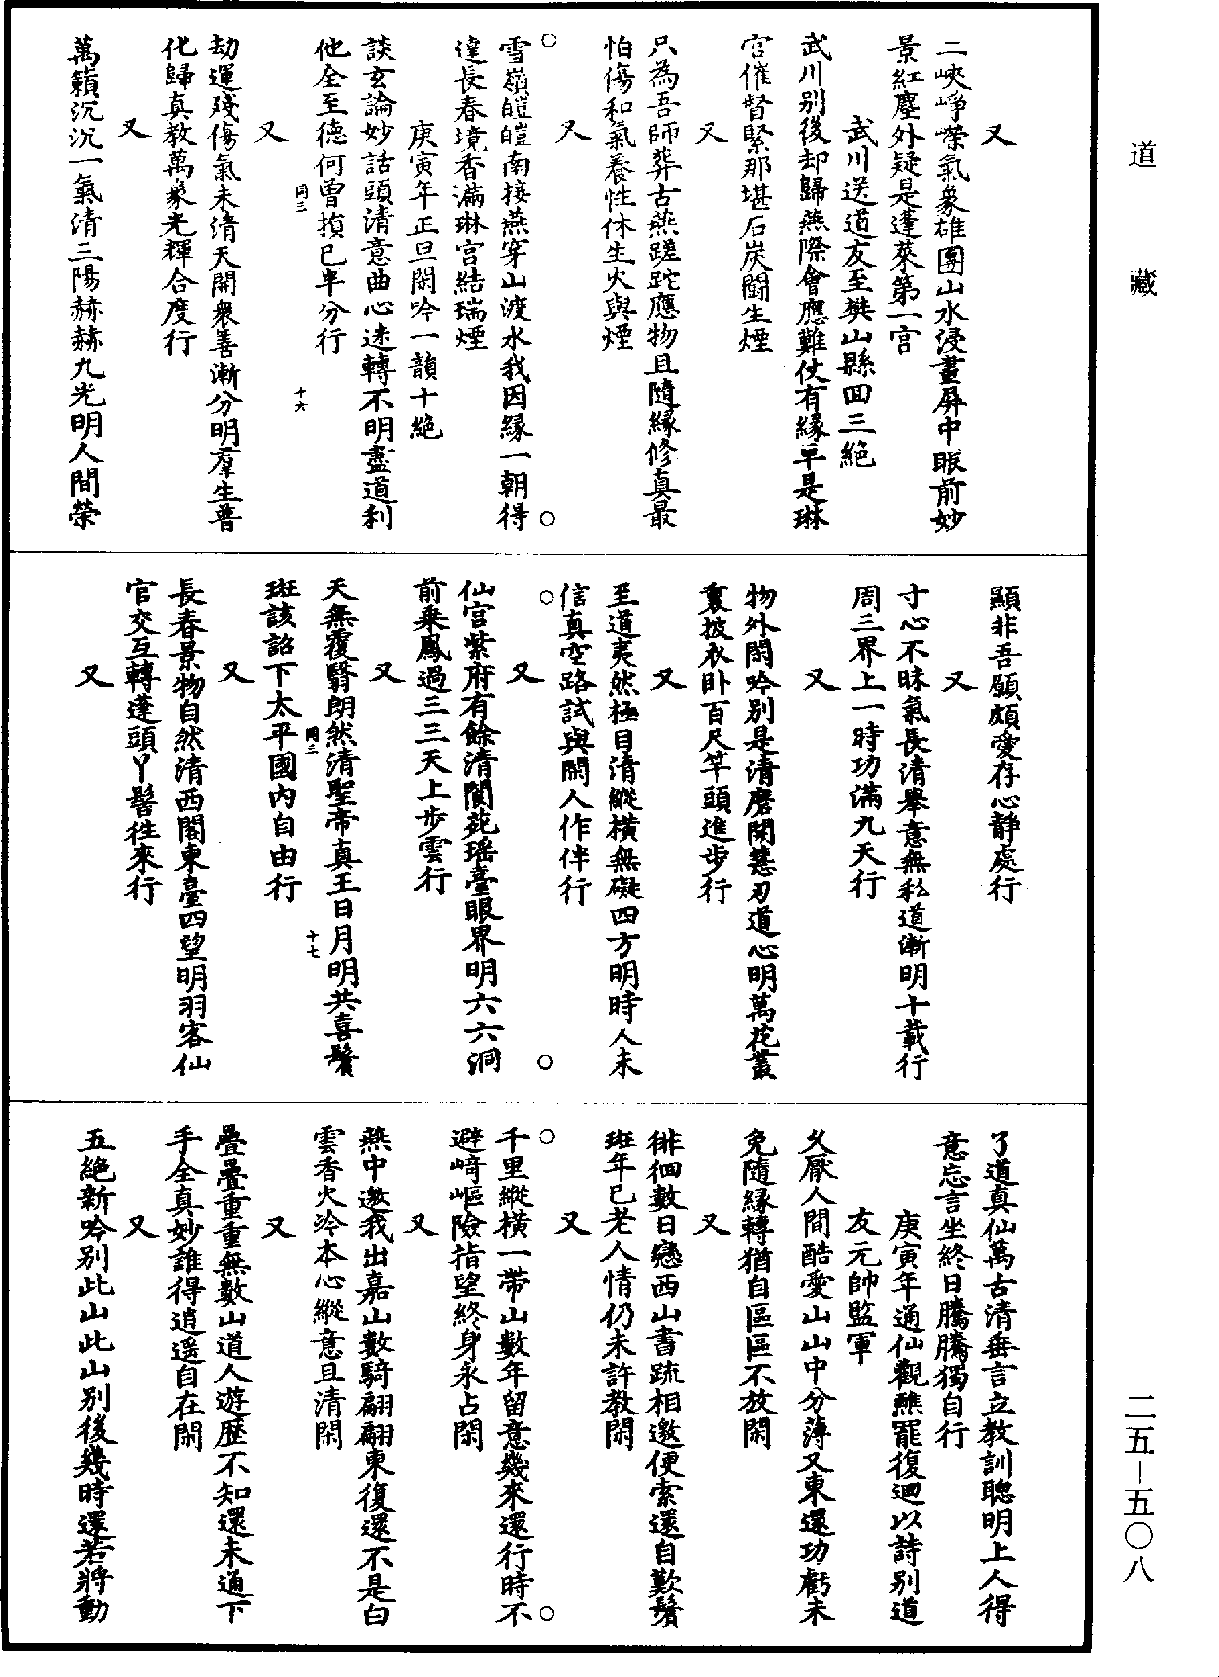 道藏
又
二峽崢嶸氣象雄團山水浸畫屏中眼前妙
景紅塵外疑是蓬萊第一宮
武川送道友至樊山縣回三絕
武川別後却歸燕際會應難仗有緣早是琳
宮催督緊那堪石炭鬪生煙
又
只為吾師葬古燕蹉跎應物且隨緣修真最
怕傷和氣養性休生火與煙
又
雪嶺皚皚南接燕穿山渡水我因緣一朝得
達長春境香滿琳宮結瑞煙
庚寅年正旦閑吟一韻十絕
談玄論妙話頭清意曲心迷轉不明盡道利
他全至德何曾損己半分行
同三 十六
又
劫運殘傷氣未清天開衆善漸分明羣生普
化歸真教萬象光輝合度行
又
萬籟沉沉一氣清三陽赫赫九光明人間榮
顯非吾願頗愛存心靜處行
又
寸心不昧氣長清舉意無私道漸明十載行
周三界上一時功滿九天行
又
物外閑吟別是清磨開慧刃道心明萬花叢
裏披衣卧百尺竿頭進步行
又
至道夷然極目清縱橫無礙四方明時人未
信真空路試與閑人作伴行
又
仙宮紫府有餘清閬苑瑤臺眼界明六六洞
前乘鳳過三三天上步雲行
又
天無覆翳朗然清聖帝真王日月明共喜鬢
同三 十七
斑該詔下太平國內自由行
又
長春景物自然清西閣東臺四望明羽客仙
官交互轉蓬頭丫髻往來行
又
了道真仙萬古清垂言立教訓聰明上人得
意忘言坐終日騰騰獨自行
庚寅年通仙觀醮罷復迴以詩別道
友元帥監軍
久厭人間酷愛山山中分薄又東還功虧未
免隨緣轉猶自區區不放閑
又
徘徊數日戀西山書疏相邀便索還自歎鬢
斑年已老人情仍未許教閑
又
千里縱橫一帶山數年留意幾來還行時不
避崎嶇險指望終身永占閑
又
燕中邀我出嘉山數騎翩翩東復還不是白
雲香火泠本心縱意且清閑
又
疊疊重重無數山道人遊歷不知還未通下
手全真妙誰得逍遙自在閑
又
五絕新吟別此山此山別後幾時還若將動
二五－五〇八